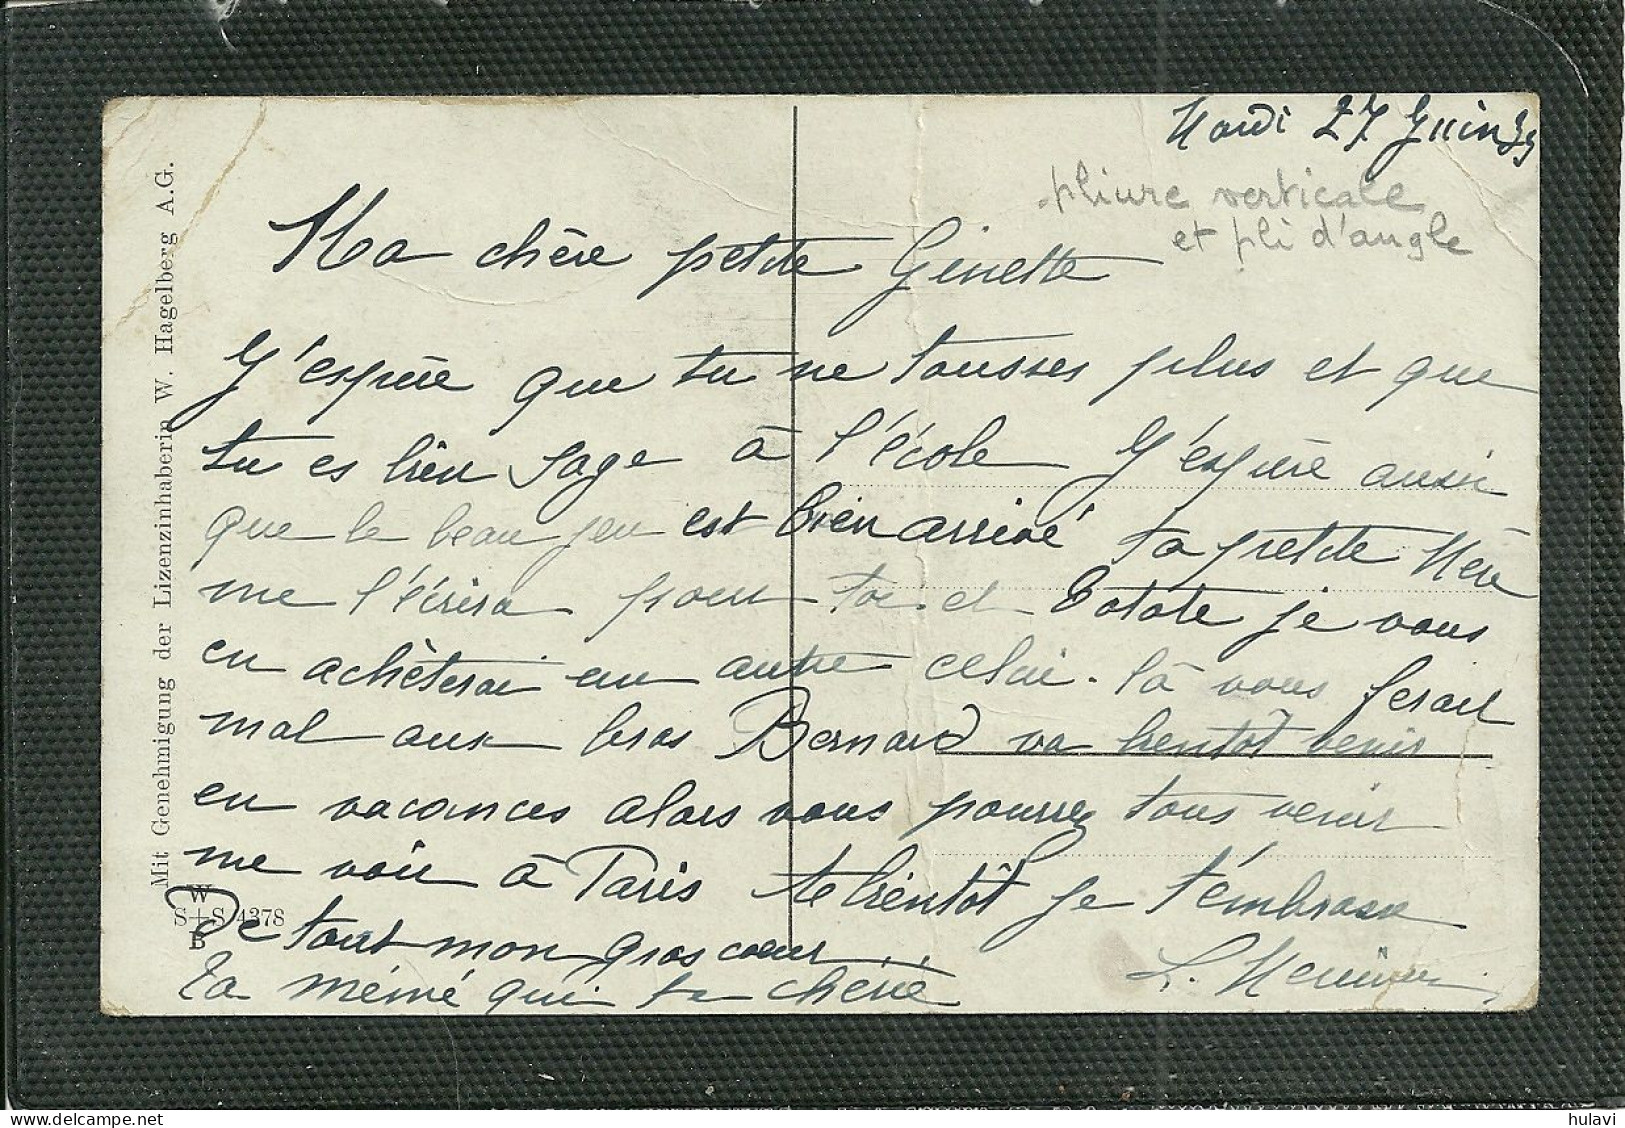 Mardi 27 Juin 39
pliure verticale
et pli d'angle
Ma chère petite Ginette
J'espère que tu ne tousses plus et que
tu es bien sage à l'école J'espère aussi
que le beau jeu est bien arrivé ta petite Mère
me l'écrira pour toi et Totote je vous
en achèterai un autre celui-là vous ferait
mal aux bras Bernard va bientôt venir
en vacances alors vous pourrez tous venir
me voir à Paris A bientôt je t'embrasse
de tout mon gros coeur
Ta mémé qui ta chérie
L.
Mit Genehmigung der Lizenzinhaberin W. Hagelberg A.G.
W
S+S 4378
B
hulavi